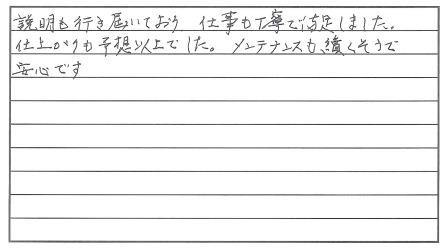 説明も行き届いており 仕事も丁寧で満足しました。
仕上がりも予想以上でした。メンテナンスも続くそうで
安心です